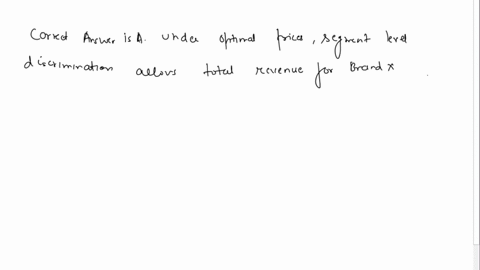 Correct Answer is A. under optimal prices, segment level
discrimination allows total revenue for Brand X